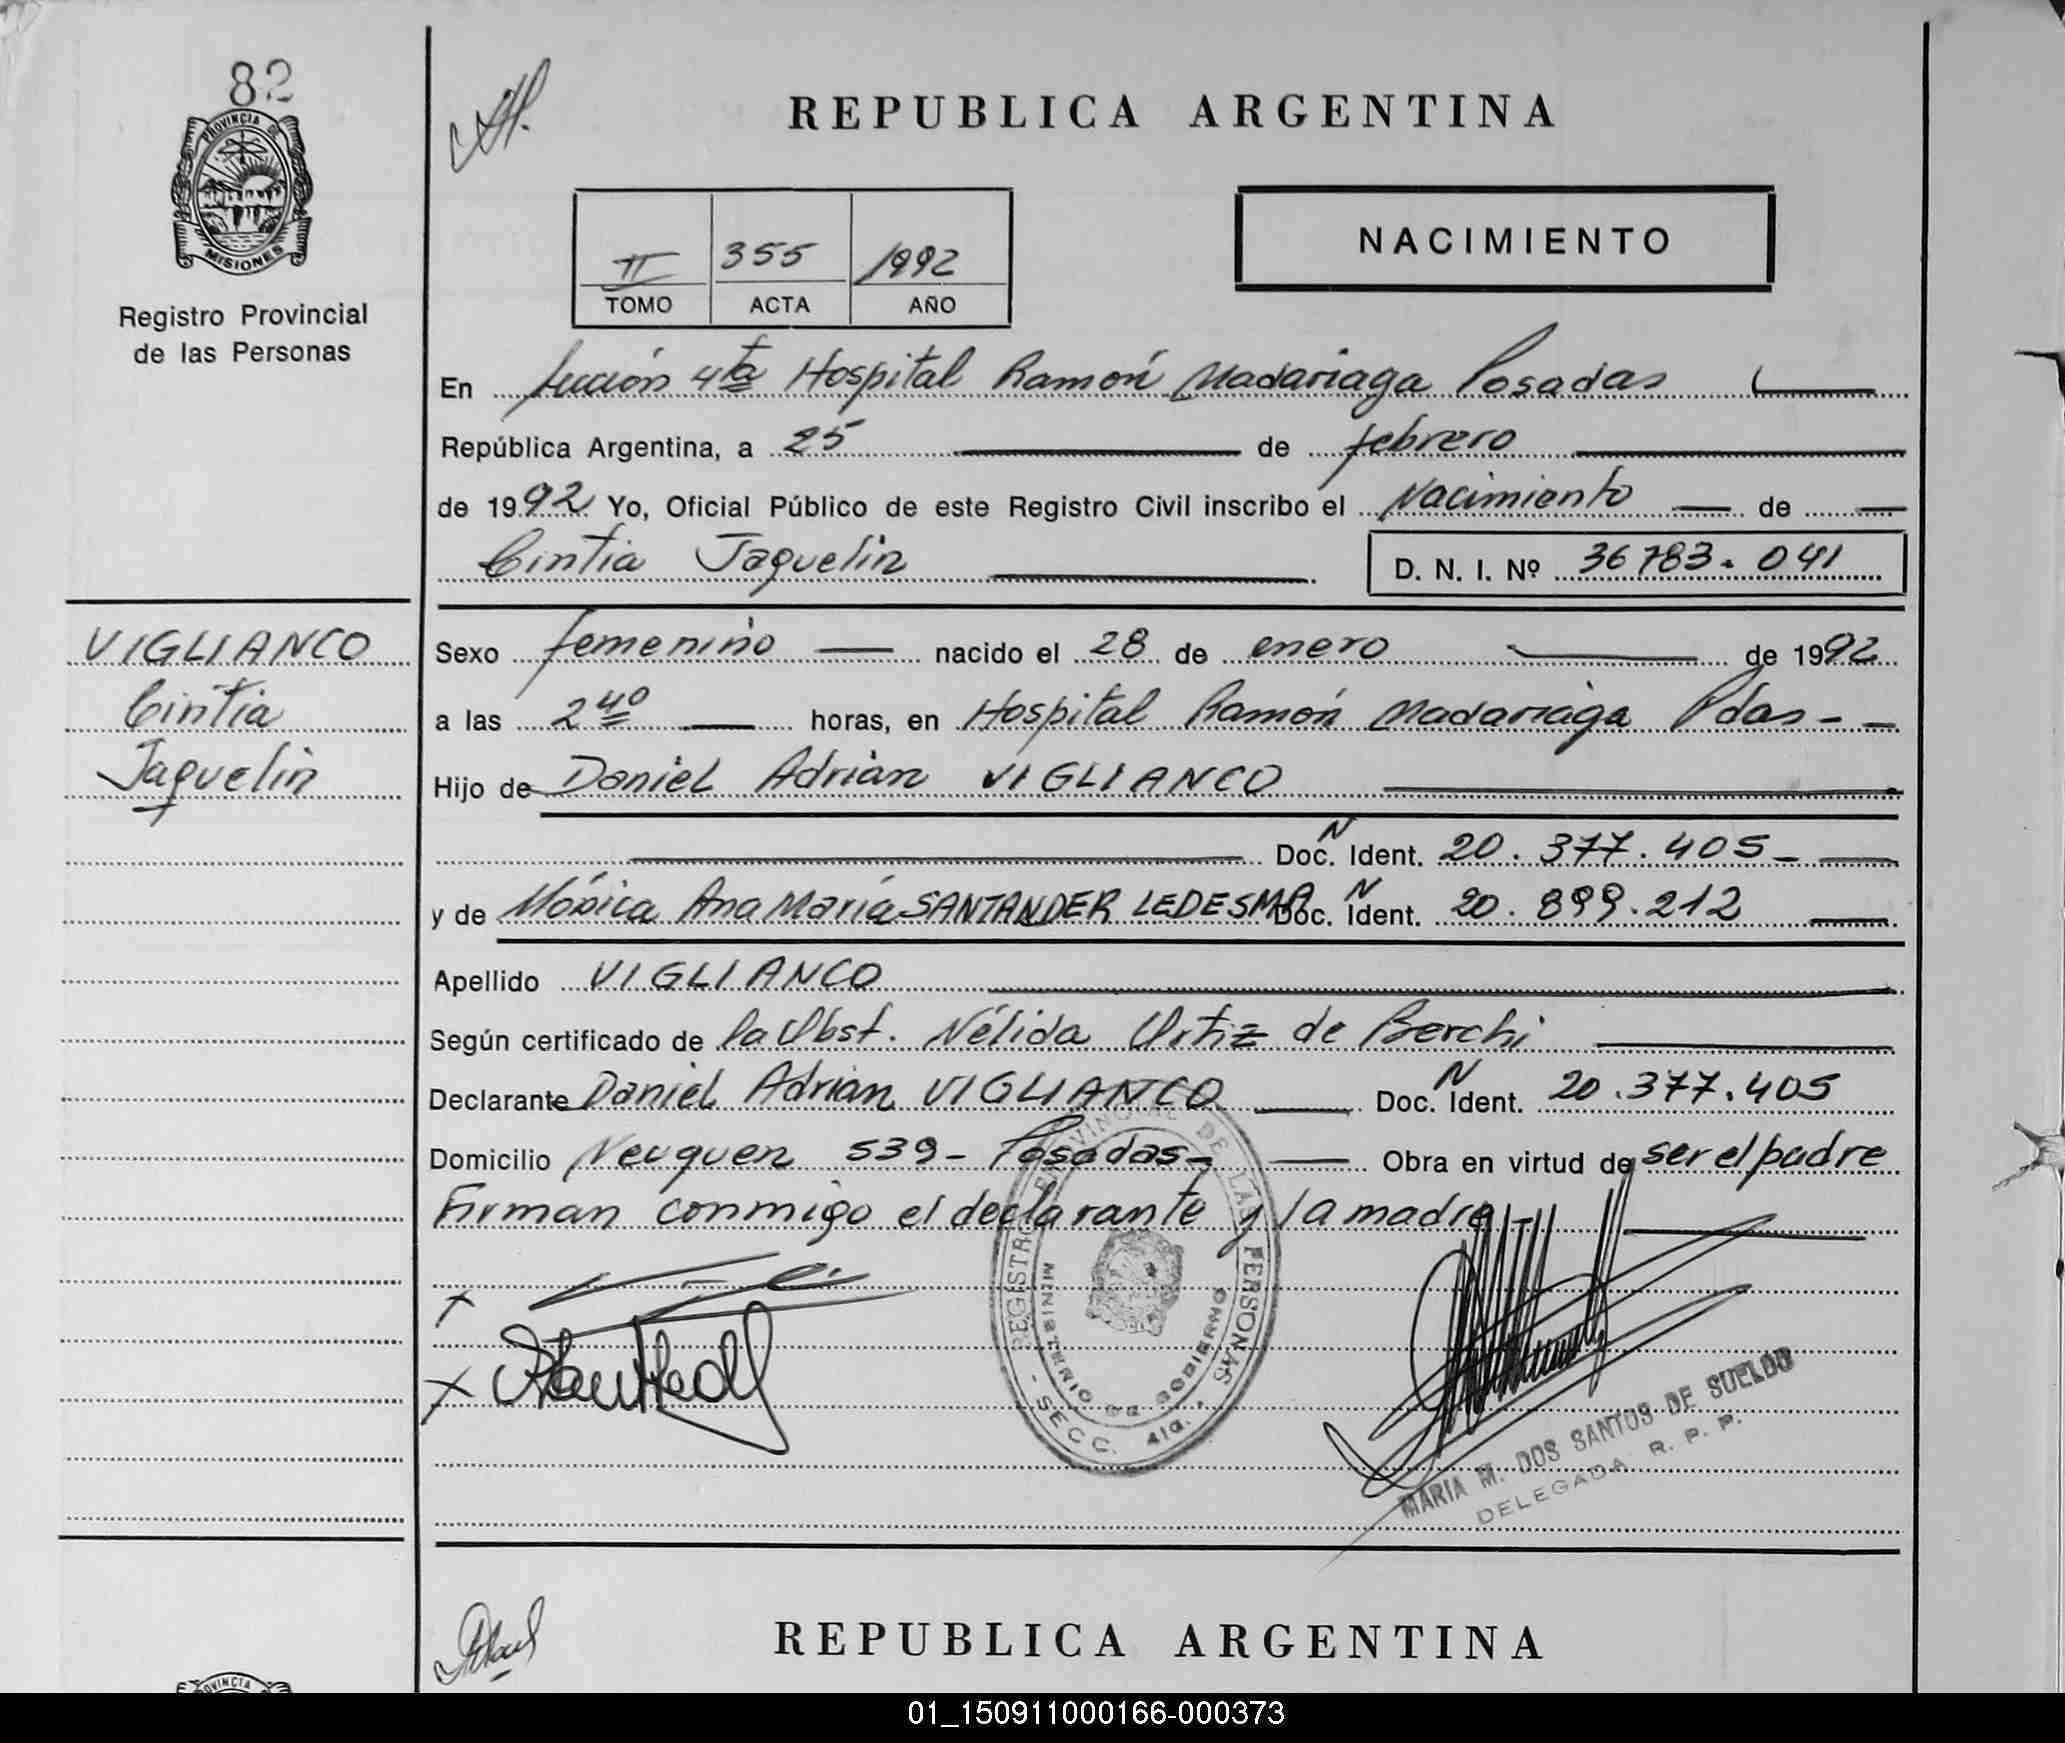 82
PROVINCIA DE
MISIONES
Registro Provincial
de las Personas
REPUBLICA ARGENTINA
II 355 1992
TOMO ACTA AÑO
NACIMIENTO
En Sección 4ta Hospital Ramón Madariaga Posadas
República Argentina, a 25 de febrero
de 1992 Yo, Oficial Público de este Registro Civil inscribo el Nacimiento de
Cintia Jaquelin D. N. I. Nº 36783.041
VIGLIANCO
Cintia
Jaquelin
Sexo femenino nacido el 28 de enero de 1992
a las 2 40 horas, en Hospital Ramón Madariaga Pdas - -
Hijo de Daniel Adrián VIGLIANCO
Doc. N Ident. 20.377.405-
y de Mónica Ana María SANTANDER LEDESMA Doc. N Ident. 20.899.212
Apellido VIGLIANCO
Según certificado de la Obst. Nélida Ortiz de Berchi
Declarante Daniel Adrián VIGLIANCO Doc. N Ident. 20.377.405
Domicilio Neuquen 539- Posadas- Obra en virtud de ser el padre
Firman conmigo el declarante y la madre-
REGISTRO PROVINCIAL DE LAS PERSONAS
MINISTERIO DE GOBIERNO
- SECC. 4ta. -
MARIA M. DOS SANTOS DE SUELDO
DELEGADA R. P. P.
REPUBLICA ARGENTINA
PROVINCIA
01_150911000166-000373